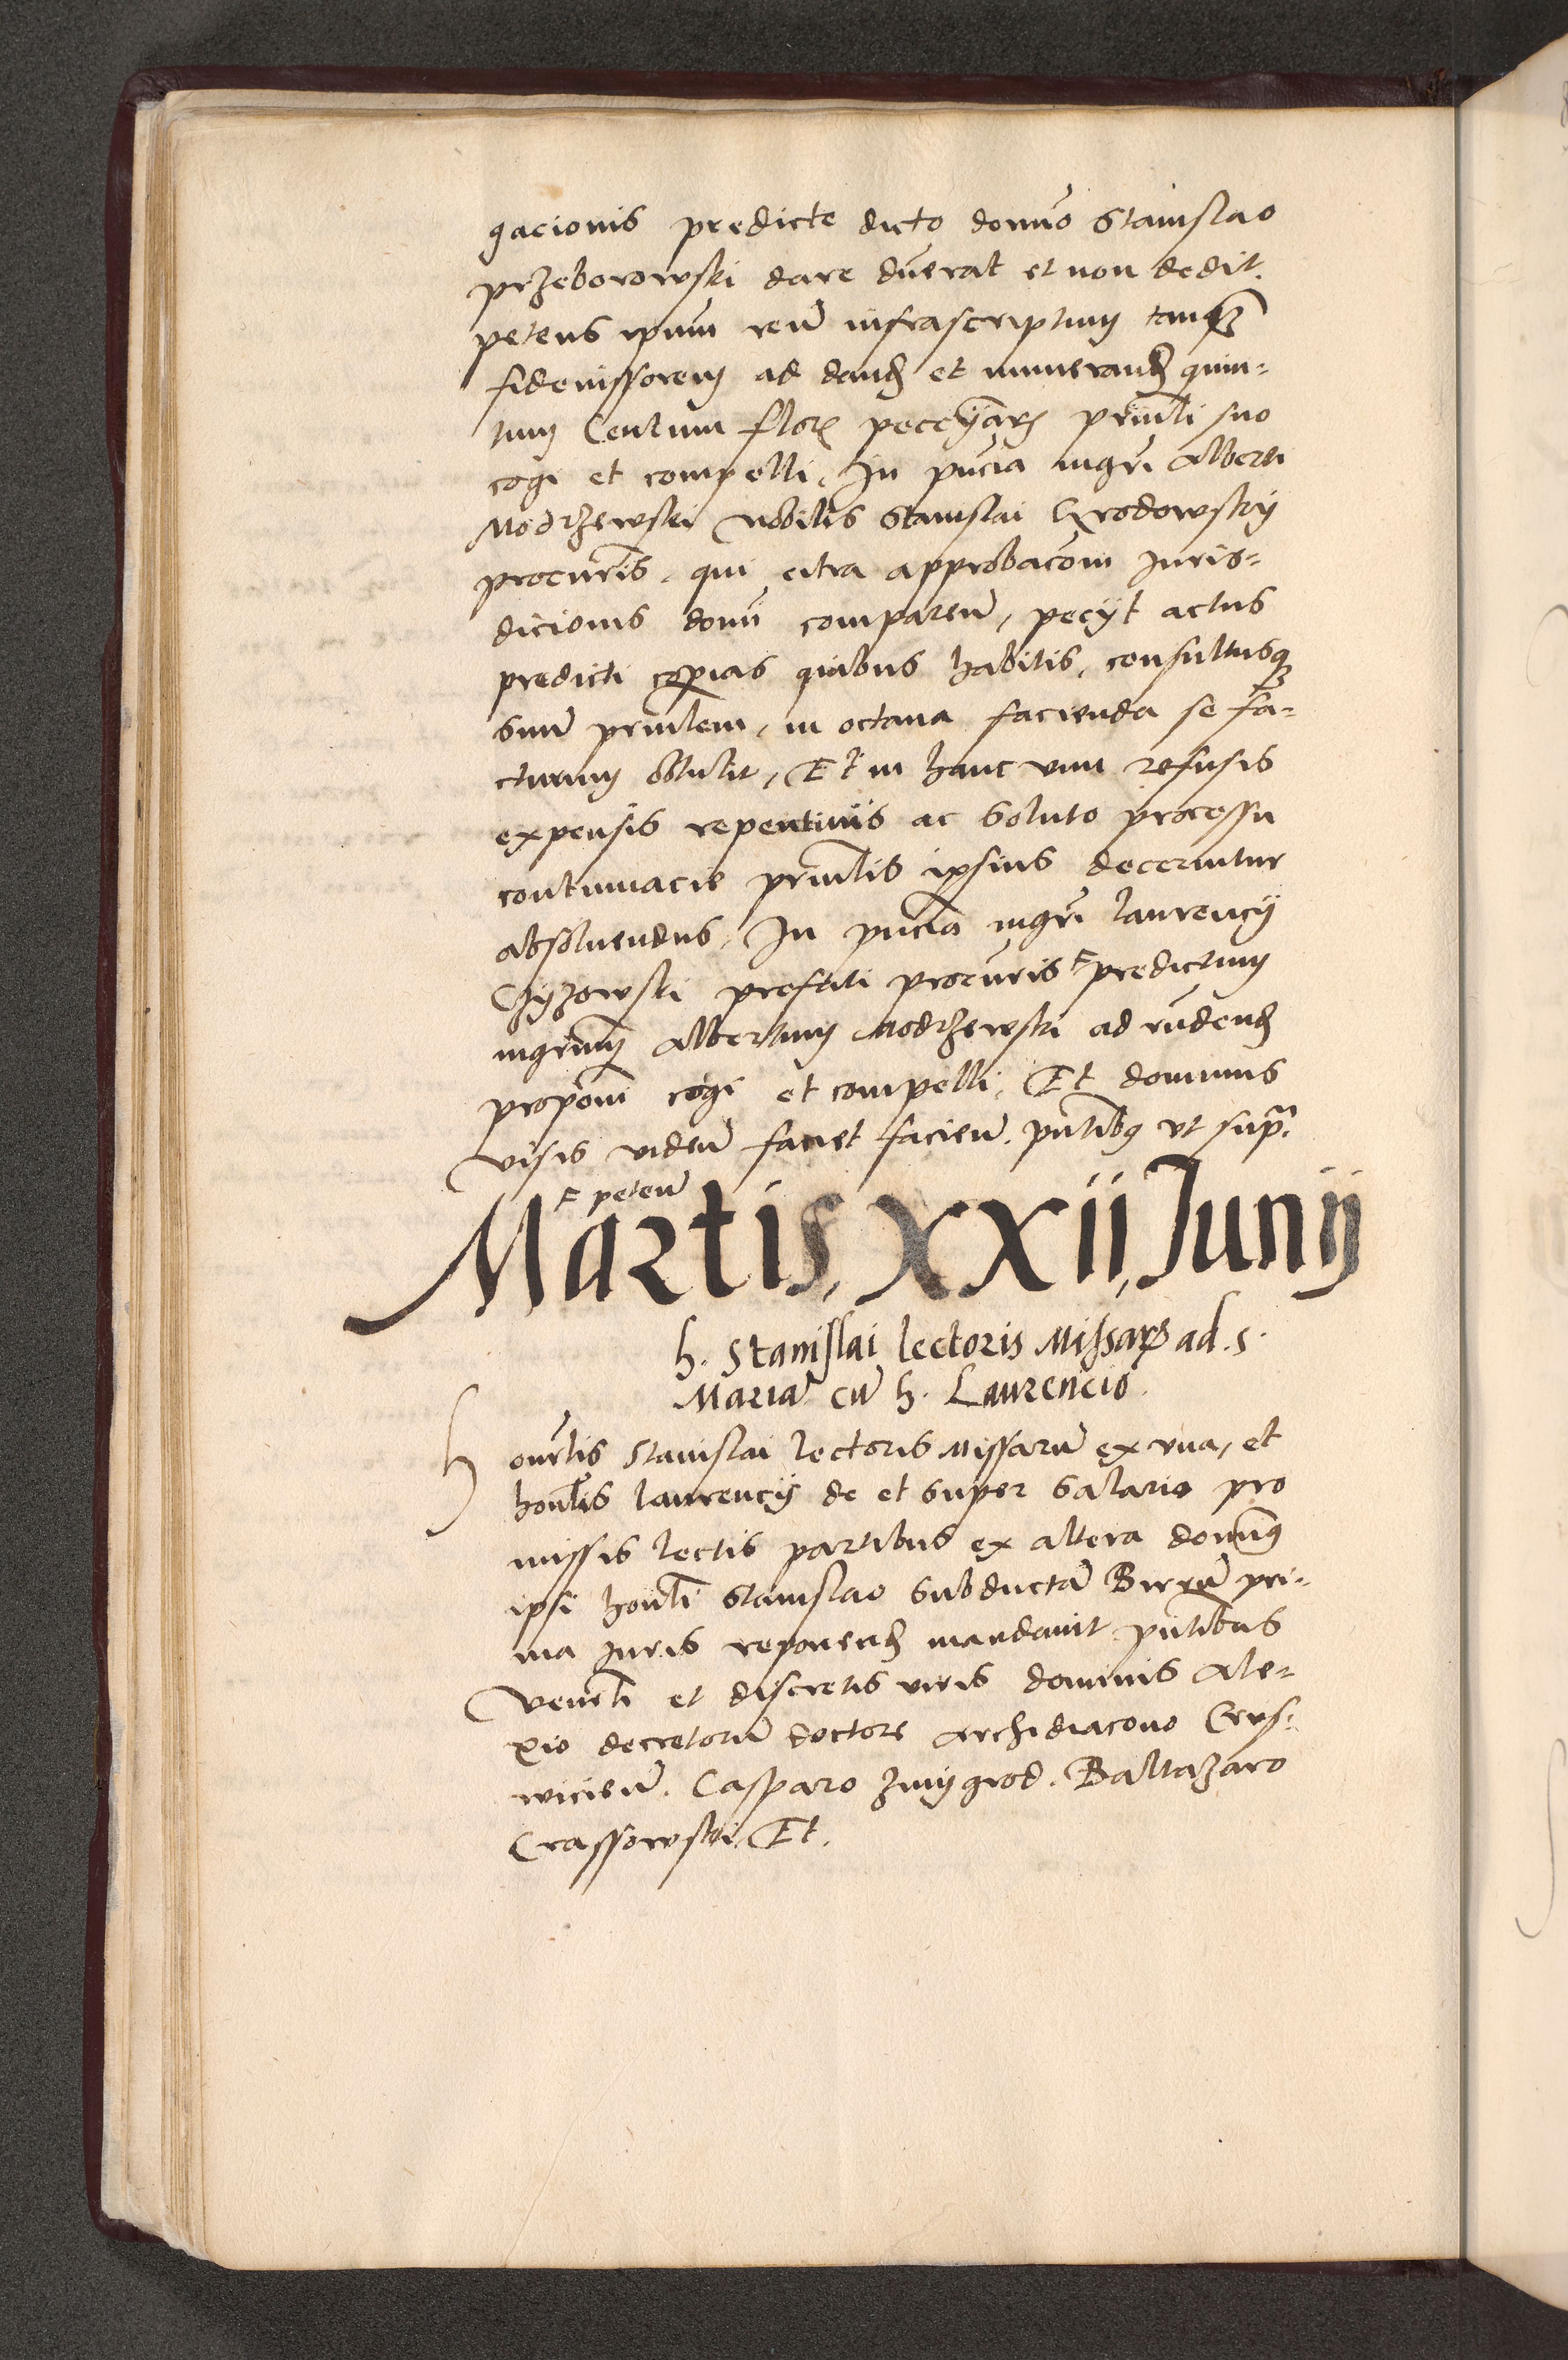 gacionis predicte dicto domno Stanislao
przeborowski dare duerat et non dedit.
petens ipsum reum infrascriptum tanq̃
fideiussorem ad dand et numerand quin=
tum Centum flor peccuniar principli suo
cogi et compelli, In pncia mgri Alberti
Modrzewski Nobilis Stanislai Grodowsky
procuris, qui citra approbacom Juris=
dicionis domi comparen, peciit actus
predicti copias quibus habitis, consultusq
suum princlem, in octava facienda se fa=
cturum obtulit, Et in hanc vim refusis
expensis repentinis ac soluto processu
contumacie princlis ipsius decernitur
absoluendus, In pncia mgri Laurencij
Czyzowski prefati procuris predictum
mgrum Albertum Modrzewski ad rndend
proponi cogi et compelli, Et dominus
visis viden faciet facien. pntibus vt supra
peten
Martis, XXII, Junij
h. Stanislai lectoris Missar ad. s.
Maria cu h. Laurencio.
honorlis Stanislai lectoris Missaru ex vna, et
honlis Laurencij de et super salario pro
missis lectis partibus ex altera domnus
ipsi honli Stanislao subducta Birru pri=
ma Juris reponend mandauit pntibus
venerli et discretis viris dominis Ale=
xio decretoru doctore archidiacono Crus=
wicien. Casparo zmygrod. Baltazaro
Crassowski, Et.